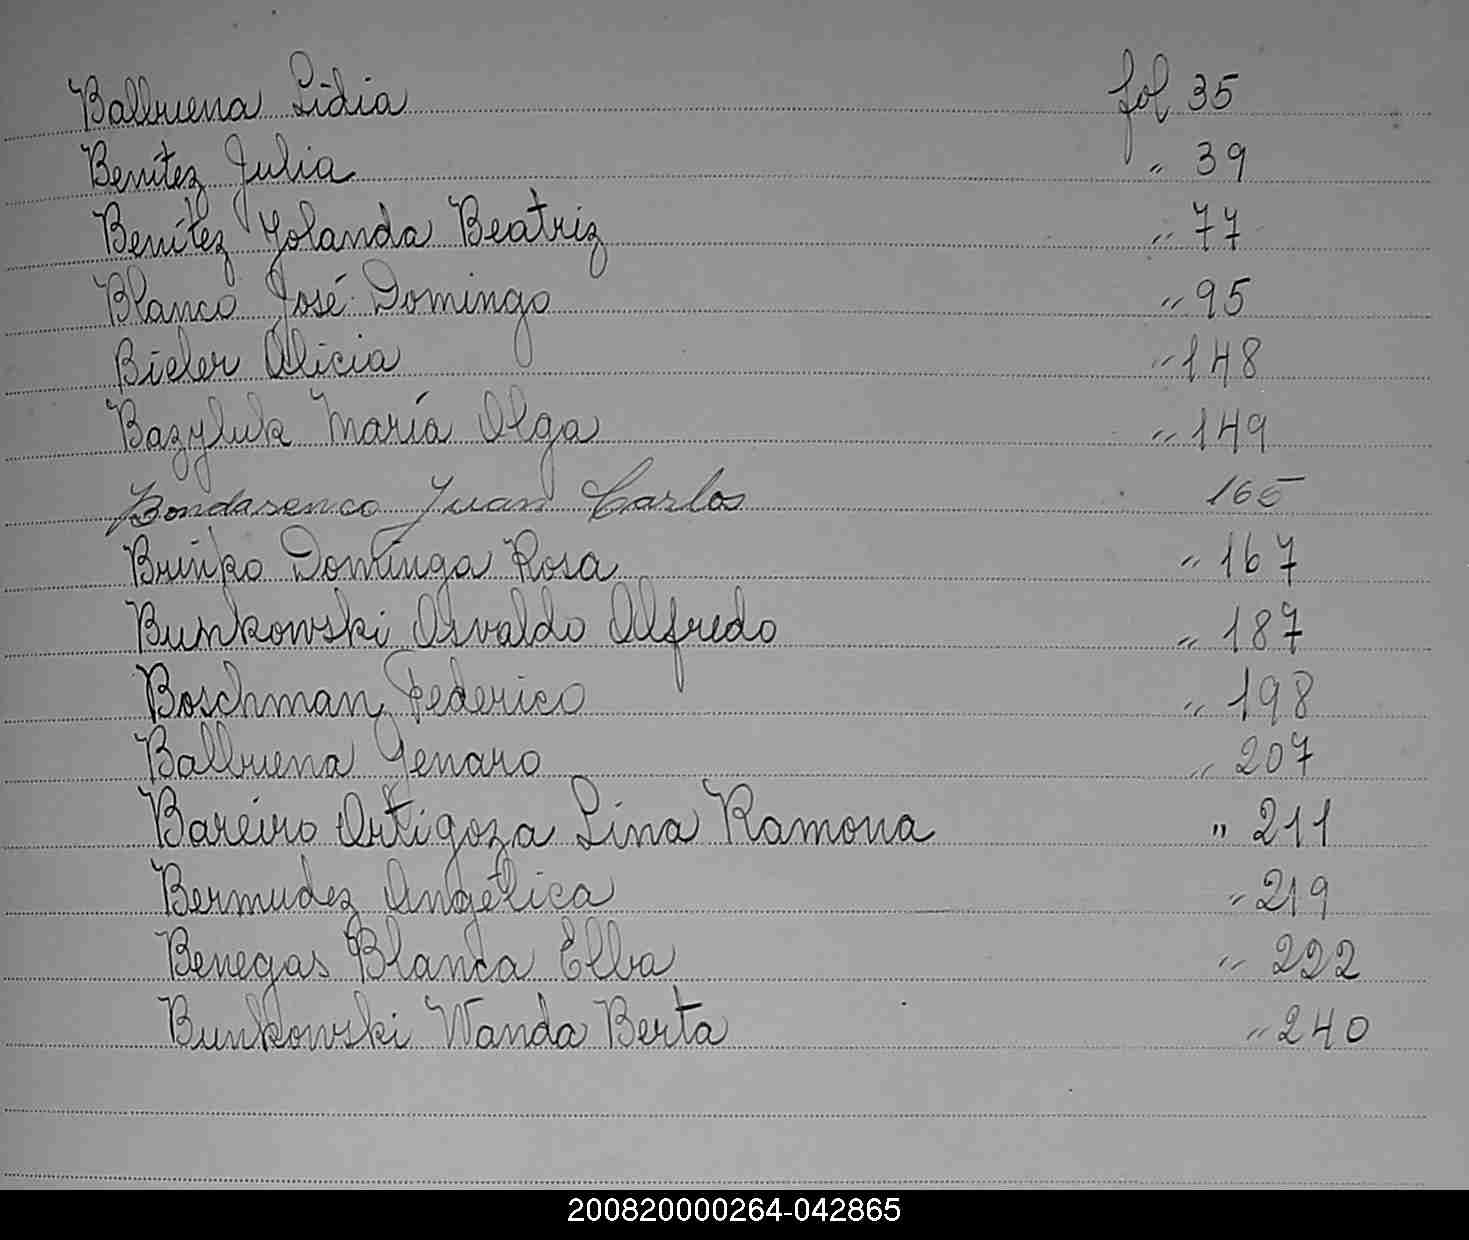 Balbuena Lidia fol 35
Benítez Julia " 39
Benítez Yolanda Beatriz " 77
Blanco José Domingo " 95
Bieler Alicia " 148
Bazyluk María Olga " 149
Bondarenco Juan Carlos 165
Dominga Rosa " 167
Bunkowski Osvaldo Alfredo " 187
Boschman Federico " 198
Balbuena Genaro " 207
Bareiro Ortigoza Lina Ramona " 211
Bermudez Angélica " 219
Benegas Blanca Elba " 222
Bunkowski Wanda Berta " 240
200820000264-042865